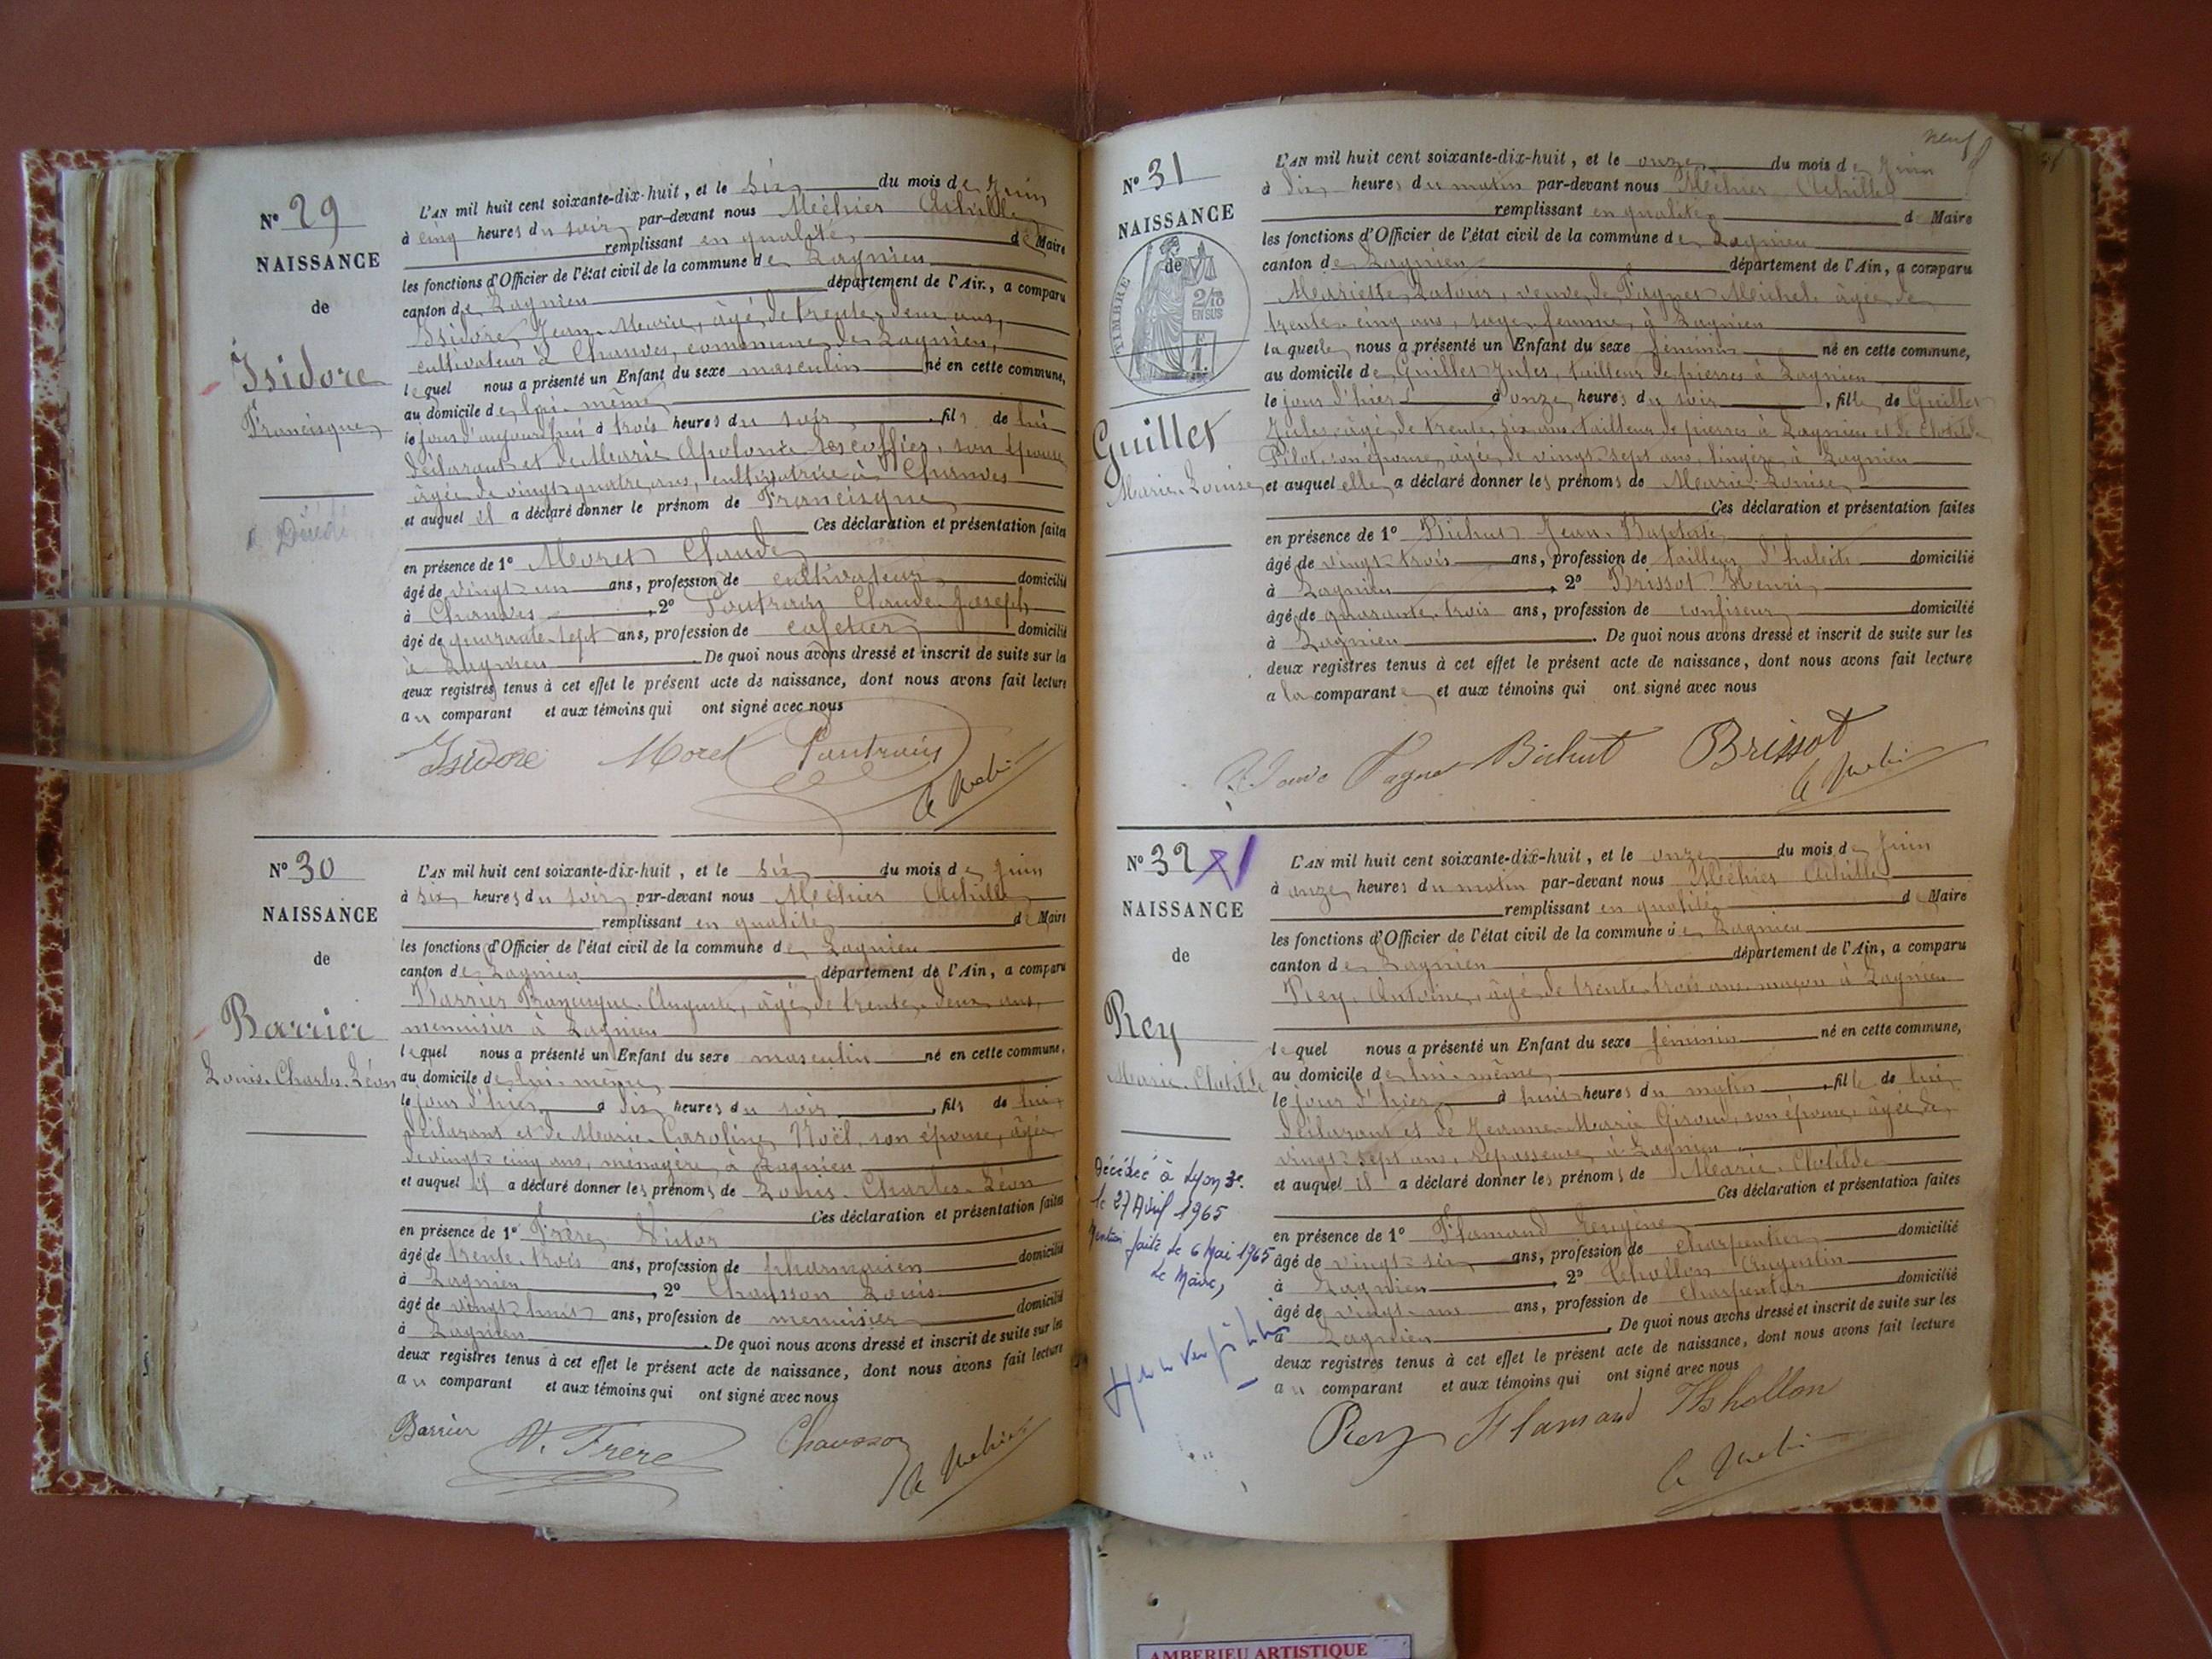 N° 29
NAISSANCE
de
Isidore
Francisque
Décédé
L'AN mil huit cent soixante-dix-huit, et le six du mois de Juin
à cinq heures du soir par-devant nous Méhier Achille
remplissant en qualité de Maire
les fonctions d'Officier de l'état civil de la commune de Lagnieu
canton de Lagnieu département de l'Ain, a comparu
Isidore Jean-Marie, âgé de trente-deux ans,
cultivateur à Chanves, commune de Lagnieu,
lequel nous a présenté un Enfant du sexe masculin né en cette commune,
au domicile de lui-même
le jour d'aujourd'hui à trois heures du soir, fils de lui
déclarant et de Marie Apolonie Lescoffier, son épouse
âgée de vingt-quatre ans, cultivatrice à Chanves
et auquel il a déclaré donner le prénom de Francisque
Ces déclaration et présentation faites
en présence de 1° Moret Claude
âgé de vingt-un ans, profession de cultivateur domicilié
à Chanves, 2° Claude-Joseph
âgé de quarante-sept ans, profession de cafetier domicilié
à Lagnieu. De quoi nous avons dressé et inscrit de suite sur les
deux registres tenus à cet effet le présent acte de naissance, dont nous avons fait lecture
au comparant et aux témoins qui ont signé avec nous
Isidore Moret
N° 30
NAISSANCE
de
Barrier
Louis-Charles-Léon
L'AN mil huit cent soixante-dix-huit, et le six du mois de Juin
à six heures du soir par-devant nous Méhier Achille
remplissant en qualité de Maire
les fonctions d'Officier de l'état civil de la commune de Lagnieu
canton de Lagnieu département de l'Ain, a comparu
Barrier Francisque-Auguste, âgé de trente-deux ans,
menuisier à Lagnieu
lequel nous a présenté un Enfant du sexe masculin né en cette commune,
au domicile de lui-même
le jour d'hier à dix heures du soir, fils de lui
déclarant et de Marie-Caroline Noël, son épouse, âgée
de vingt-cinq ans, ménagère à Lagnieu
et auquel il a déclaré donner les prénoms de Louis-Charles-Léon
Ces déclaration et présentation faites
en présence de 1° Frère Victor
âgé de trente-trois ans, profession de pharmacien domicilié
à Lagnieu, 2° Chausson Louis
âgé de vingt-huit ans, profession de menuisier domicilié
à Lagnieu. De quoi nous avons dressé et inscrit de suite sur les
deux registres tenus à cet effet le présent acte de naissance, dont nous avons fait lecture
au comparant et aux témoins qui ont signé avec nous
Barrier V. Frere Chausson A Mehier
neuf
N° 31
NAISSANCE
de
TIMBRE
2/10
EN SUS
Guillet
Marie-Louise
L'AN mil huit cent soixante-dix-huit, et le onze du mois de Juin
à dix heures du matin par-devant nous Méhier Achille
remplissant en qualité de Maire
les fonctions d'Officier de l'état civil de la commune de Lagnieu
canton de Lagnieu département de l'Ain, a comparu
Mariette Latour, veuve de Fagnet Michel âgée de
trente-cinq ans, sage-femme, à Lagnieu
laquelle nous a présenté un Enfant du sexe féminin né en cette commune,
au domicile de Guillet Jules, tailleur de pierres à Lagnieu
le jour d'hier à onze heures du soir, fille de Guillet
Jules, âgé de trente-six ans, tailleur de pierres à Lagnieu et de Clotilde
Pilot son épouse, âgée de vingt-sept ans, lingère, à Lagnieu
et auquel elle a déclaré donner les prénoms de Marie-Louise
Ces déclaration et présentation faites
en présence de 1° Bichut Jean-Baptiste
âgé de vingt-trois ans, profession de tailleur d'habits domicilié
à Lagnieu, 2° Brissot Henri
âgé de quarante-trois ans, profession de confiseur domicilié
à Lagnieu. De quoi nous avons dressé et inscrit de suite sur les
deux registres tenus à cet effet le présent acte de naissance, dont nous avons fait lecture
a la comparante et aux témoins qui ont signé avec nous
Bichut Brissot
N° 32
NAISSANCE
de
Rey
Marie-Clotilde
Décédée à Lyon 3e.
le 27 Avril 1965
Mention faite le 6 Mai 1965
Le Maire,
L'AN mil huit cent soixante-dix-huit, et le onze du mois de Juin
à onze heures du matin par-devant nous Méhier Achille
remplissant en qualité de Maire
les fonctions d'Officier de l'état civil de la commune de Lagnieu
canton de Lagnieu département de l'Ain, a comparu
Rey, Antoine, âgé de trente-trois ans, maçon à Lagnieu
lequel nous a présenté un Enfant du sexe féminin né en cette commune,
au domicile de lui-même
le jour d'hier à huit heures du matin, fille de lui
déclarant et de Jeanne-Marie Giroud, son épouse, âgée de
vingt-sept ans, repasseuse, à Lagnieu
et auquel il a déclaré donner les prénoms de Marie-Clotilde
Ces déclaration et présentation faites
en présence de 1° Flamand Eugène domicilié
âgé de vingt-six ans, profession de charpentier
à Lagnieu, 2° Thollon Augustin
âgé de vingt-un ans, profession de charpentier domicilié
à Lagnieu. De quoi nous avons dressé et inscrit de suite sur les
deux registres tenus à cet effet le présent acte de naissance, dont nous avons fait lecture
au comparant et aux témoins qui ont signé avec nous
Rey Flamand Thollon
AMBERIEU ARTISTIQUE